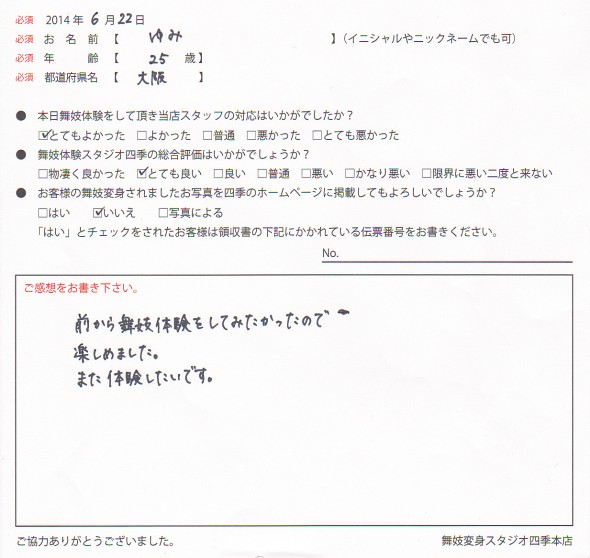 必須 2014年 6月22日
必須 お名前【 ゆみ 】(イニシャルやニックネームでも可)
必須 年齢【 25 歳】
必須 都道府県名【 大阪 】
● 本日舞妓体験をして頂き当店スタッフの対応はいかがでしたか?
☑とてもよかった □よかった □普通 □悪かった □とても悪かった
● 舞妓体験スタジオ四季の総合評価はいかがでしょうか?
□物凄く良かった ☑とても良い □良い □普通 □悪い □かなり悪い □限界に悪い二度と来ない
● お客様の舞妓変身されましたお写真を四季のホームページに掲載してもよろしいでしょうか?
□はい ☑いいえ □写真による
「はい」とチェックをされたお客様は領収書の下記にかかれている伝票番号をお書きください。
No.
ご感想をお書き下さい。
前から舞妓体験をしてみたかったので
楽しめました。
また体験したいです。
ご協力ありがとうございました。 舞妓変身スタジオ四季本店